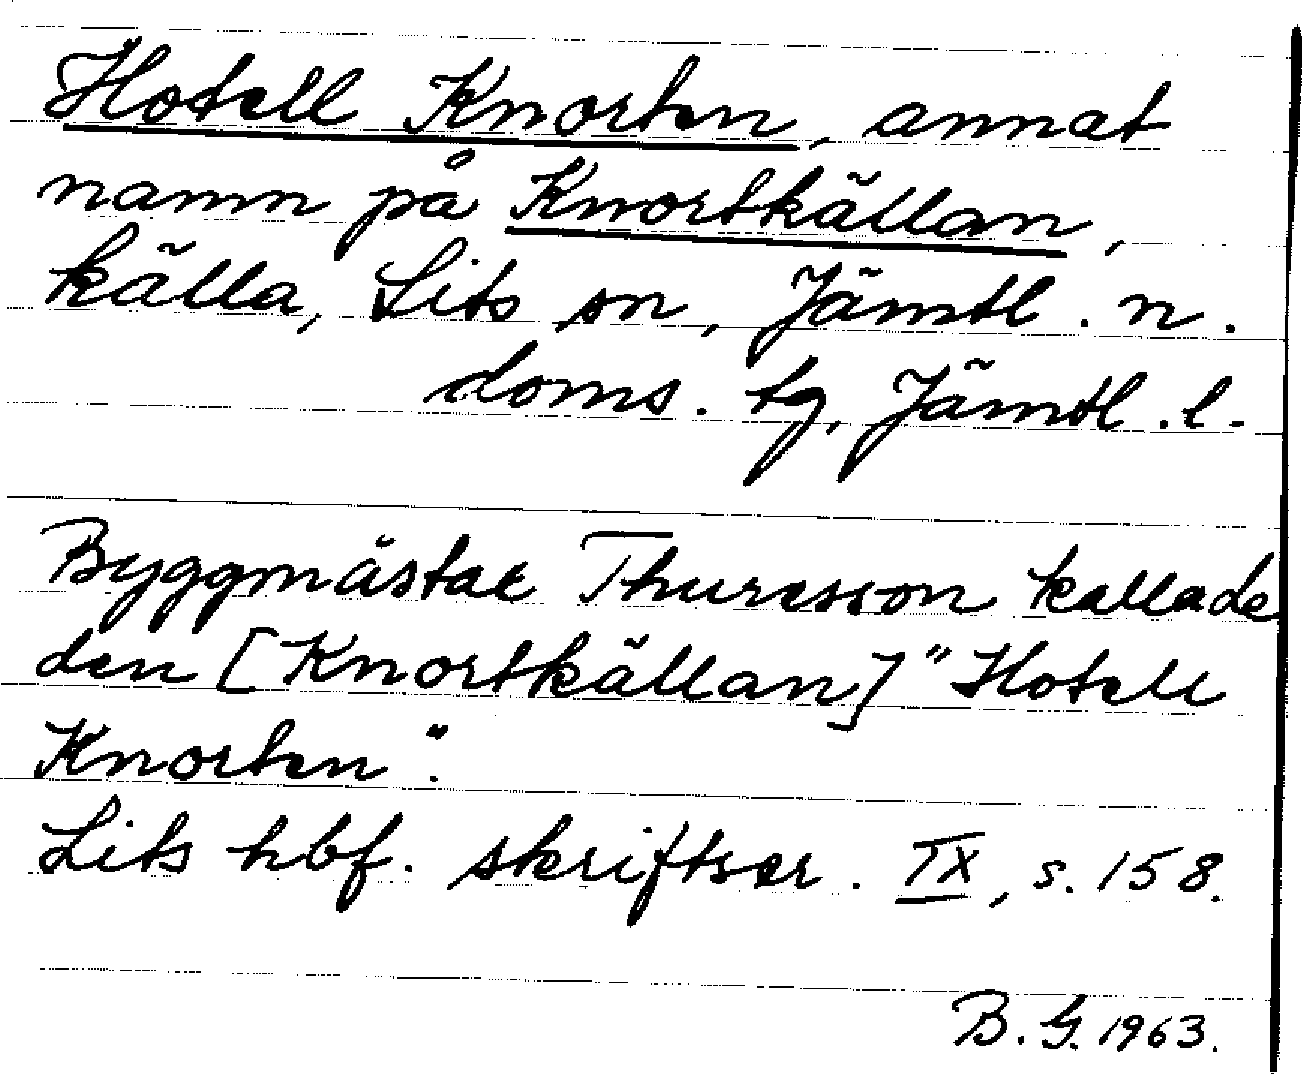 Hotell Knorten, annat
namn på Knortkällan,
källa, Lits sn, Jämtl. n.
doms. tg, Jämtl. l.
Byggmästar Thuresson kallade
den [Knortkällan] "Hotell
Knorten".
Lits hbf. skriftser. IX, s. 158.
B. G. 1963.